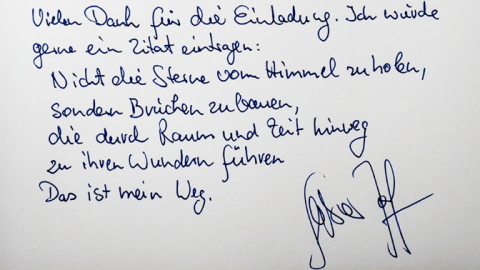 Vielen Dank für die Einladung. Ich würde
gerne ein Zitat eintragen:
Nicht die Sterne vom Himmel zu holen,
sondern Brücken zu bauen,
die durch Raum und Zeit hinweg
zu ihren Wundern führen
Das ist mein Weg.